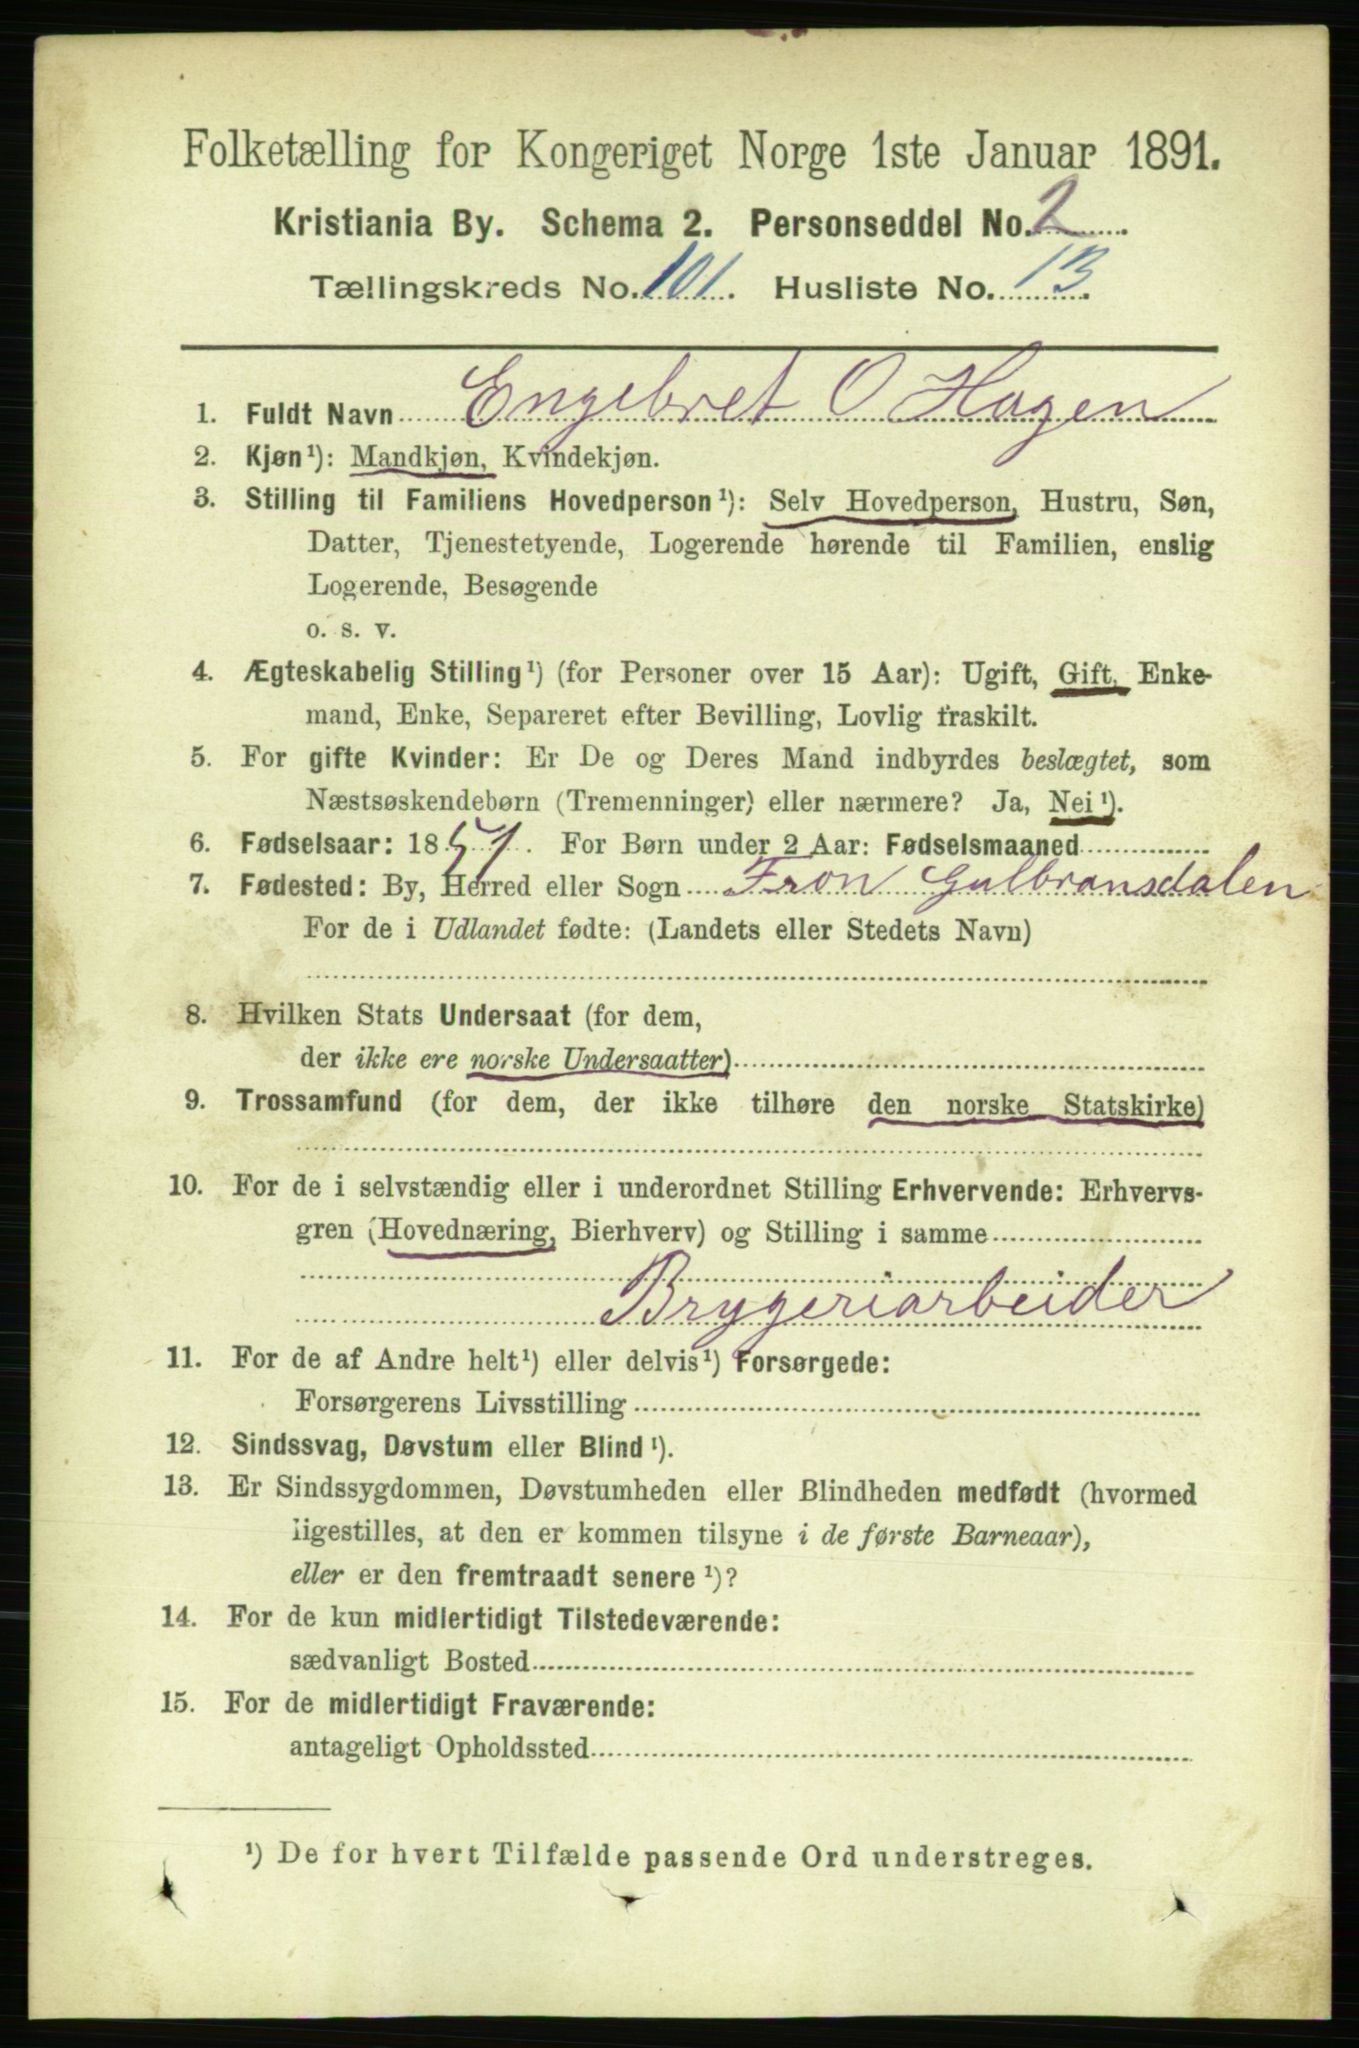 Folketælling for Kongeriget Norge 1ste Januar 1891.
Kristiania By. Schema 2. Personseddel No. 2
Tællingskreds No. 101. Husliste No. 13.
1. Fuldt Navn Engebret O Hagen
2. Kjøn¹): Mandkjøn, Kvindekjøn.
3. Stilling til Familiens Hovedperson¹): Selv Hovedperson, Hustru, Søn,
Datter, Tjenestetyende, Logerende hørende til Familien, enslig
Logerende, Besøgende
o. s. v.
4. Ægteskabelig Stilling¹) (for Personer over 15 Aar): Ugift, Gift, Enke-
mand, Enke, Separeret efter Bevilling, Lovlig fraskilt.
5. For gifte Kvinder: Er De og Deres Mand indbyrdes beslægtet, som
Næstsøskendebørn (Tremenninger) eller nærmere? Ja, Nei¹).
6. Fødselsaar: 1851. For Børn under 2 Aar: Fødselsmaaned
7. Fødested: By, Herred eller Sogn Fron Gulbransdalen
For de i Udlandet fødte: (Landets eller Stedets Navn)
8. Hvilken Stats Undersaat (for dem,
der ikke ere norske Undersaatter)
9. Trossamfund (for dem, der ikke tilhøre den norske Statskirke)
10. For de i selvstændig eller i underordnet Stilling Erhvervende: Erhvervs-
gren (Hovednæring, Bierhverv) og Stilling i samme
Brygeriarbeider
11. For de af Andre helt¹) eller delvis¹) Forsørgede:
Forsørgerens Livsstilling
12. Sindssvag, Døvstum eller Blind¹).
13. Er Sindssygdommen, Døvstumheden eller Blindheden medfødt (hvormed
ligestilles, at den er kommen tilsyne i de første Barneaar),
eller er den fremtraadt senere¹)?
14. For de kun midlertidigt Tilstedeværende:
sædvanligt Bosted
15. For de midlertidigt Fraværende:
antageligt Opholdssted
¹) De for hvert Tilfælde passende Ord understreges.